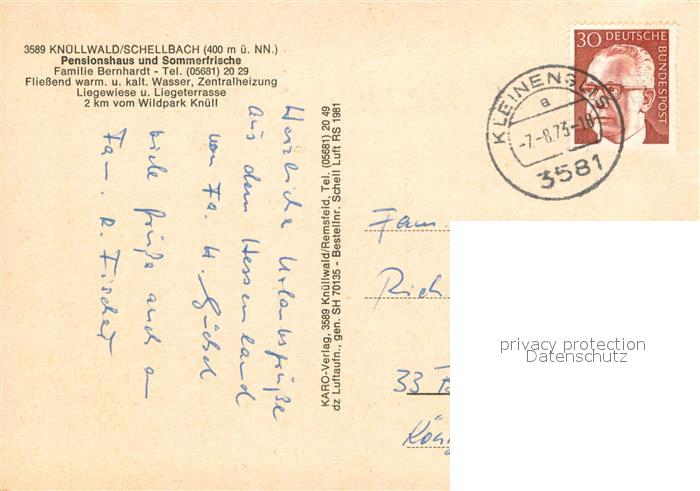 3589 KNÜLLWALD/SCHELLBACH (400 m ü. NN.)
Pensionshaus und Sommerfrische
Familie Bernhardt - Tel. (05681) 20 29
Fließend warm. u. kalt. Wasser, Zentralheizung
Liegewiese u. Liegeterrasse
2 km vom Wildpark Knüll
Herzliche Urlaubsgrüße
aus dem Hessenland
von Fa. H. Göckel
viele Grüße auch an
Fam. R. Fischer
KARO-Verlag, 3589 Knüllwald/Remsfeld, Tel. (05681) 20 49
dz Luftaufn., gen. SH 70135 - Bestellnr. Schell Luft RS 1961
30 DEUTSCHE
BUNDESPOST
KLEINENGLIS
a
-7.-8.73-18
3581
Fam.
Rich
33
König
privacy protection
Datenschutz